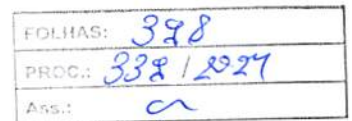 FOLHAS: 378
PROC.: 337 / 2021
Ass.: